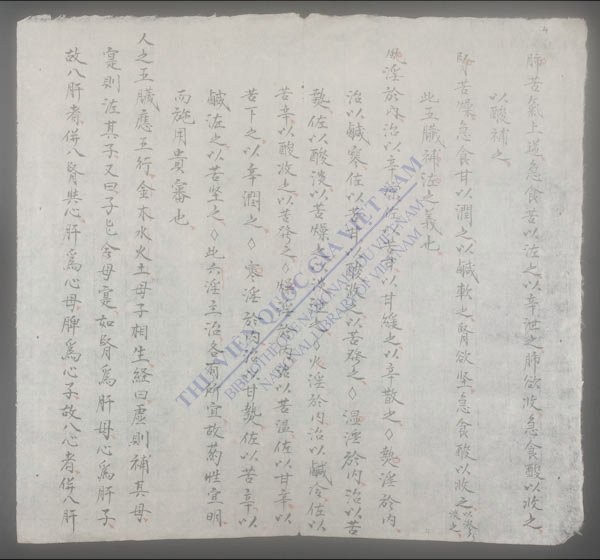 肺苦氣上逆急食苦以泄之以辛泄之肺欲收急食酸以收之
以酸補之
腎苦燥急食甘以潤之以鹹軟之腎欲坚急食以收之
此五臟補泄之義也
風淫於內治以辛佐以苦甘以甘緩之以辛散之◊熱淫於內
治以鹹寒佐以苦甘以酸收之以苦發之◊濕淫於內治以苦
熱佐以酸淡以苦燥之以淡泄之◊火淫於內治以鹹冷佐以
苦辛以酸收之以苦發之◊燥淫於內治以苦温佐以甘辛以
苦下之以辛潤之◊寒淫於內治以甘熱佐以苦辛以
鹹泄之以苦坚之◊此六淫主治各有所宜故藥性宜明
而施用貴審也
人之五臟應五行金木水火土母子相生経曰虛則補其母
寔則泄其子又曰子能令母寔如腎爲肝母心爲肝子
故入肝者併入腎與心肝爲心母脾爲心子故入心者併入肝
THƯ VIỆN QUỐC GIA VIỆT NAM
BIBLIOTHÈQUE NATIONALE DU VIETNAM
NATIONAL LIBRARY OF VIETNAM